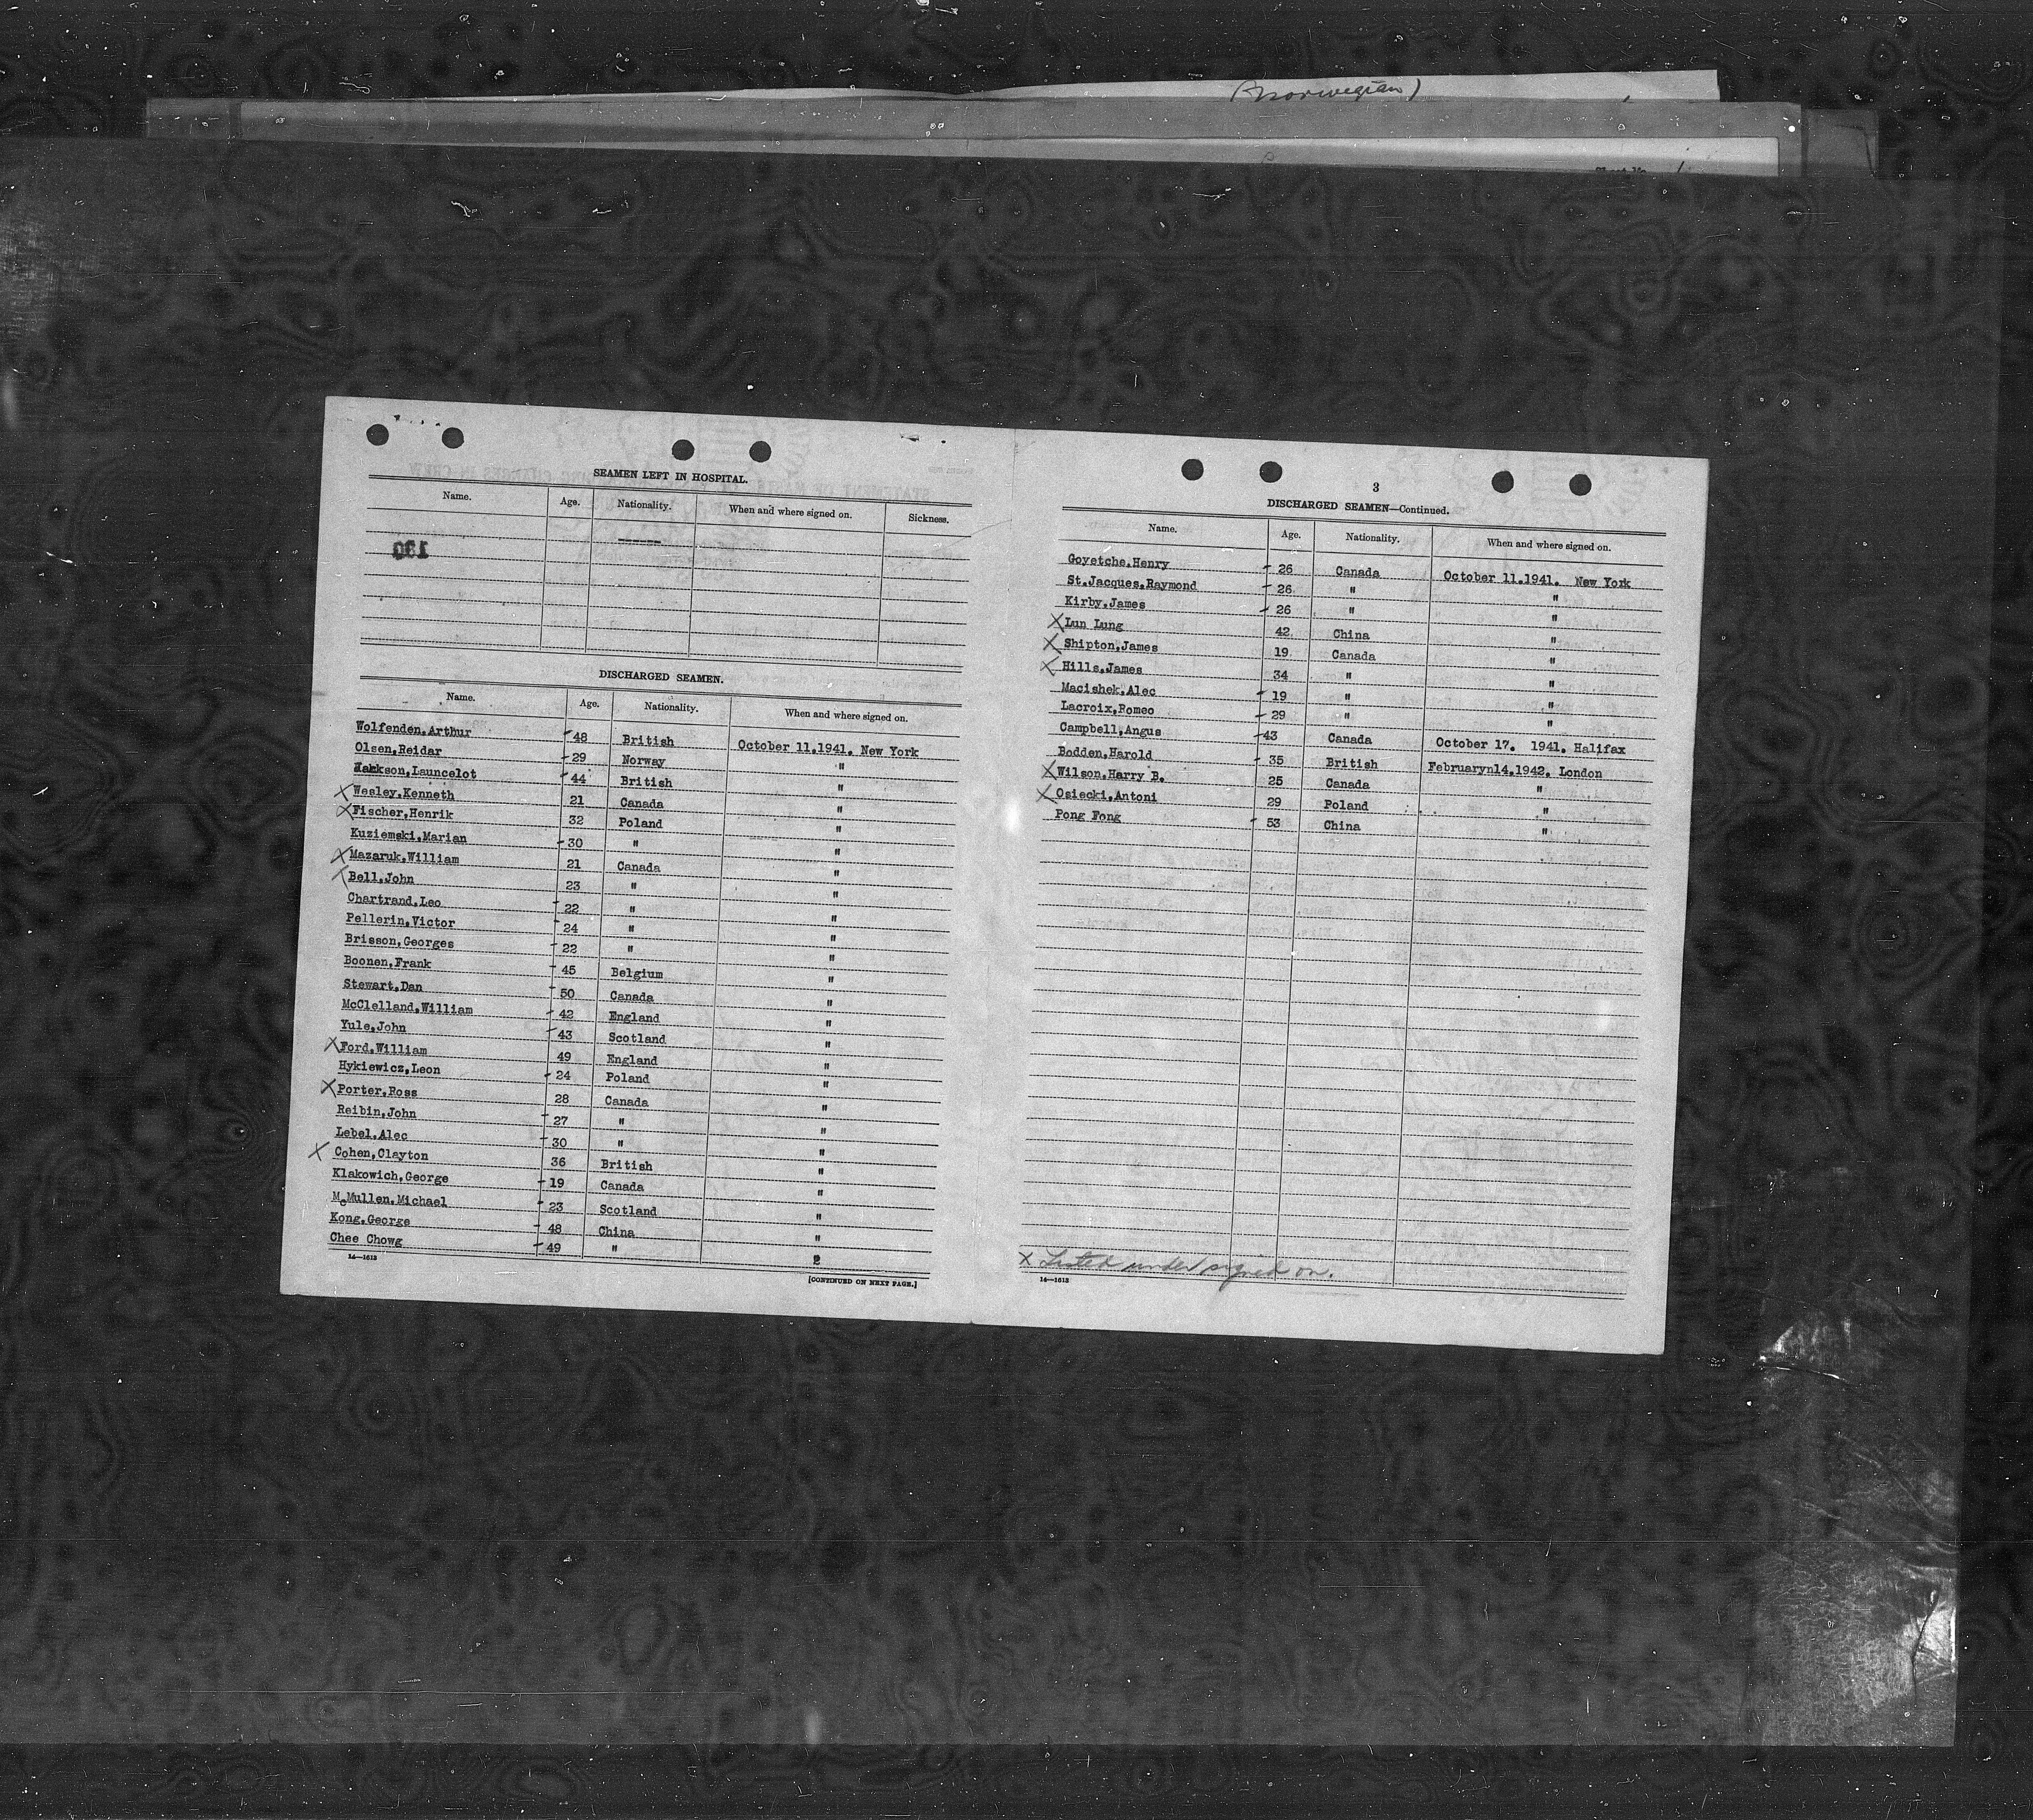 (Norwegian)
SEAMEN LEFT IN HOSPITAL.
Name. Age. Nationality. When and where signed on. Sickness.
------
130
DISCHARGED SEAMEN.
Name. Age. Nationality. When and where signed on.
Wolfenden,Arthur -48 British October 11.1941. New York
Olsen,Reidar -29 Norway "
Launcelot -44 British "
X Wesley,Kenneth 21 Canada "
X Fischer,Henrik 32 Poland "
Kuziemski,Marian -30 " "
X Mazaruk,William 21 Canada "
X Bell,John 23 " "
Chartrand,Leo -22 " "
Pellerin,Victor -24 " "
Brisson,Georges -22 " "
Boonen,Frank -45 Belgium "
Stewart,Dan -50 Canada "
McClelland,William -42 England "
Yule,John -43 Scotland "
X Ford,William 49 England "
Hykiewicz,Leon -24 Poland "
X Porter,Ross 28 Canada "
Reibin,John -27 " "
Lebel,Alec -30 " "
X Cohen,Clayton 36 British "
Klakowich,George -19 Canada "
McMullen,Michael -23 Scotland "
Kong,George -48 China "
Chee Chowg -49 " "
14—1613
[CONTINUED ON NEXT PAGE.]
3
DISCHARGED SEAMEN—Continued.
Name. Age. Nationality. When and where signed on.
Goyetche,Henry -26 Canada October 11.1941. New York
St.Jacques,Raymond -26 " "
Kirby,James -26 " "
X Lun Lung 42 China "
X Shipton,James 19 Canada "
X Hills,James 34 " "
Macishek,Alec -19 " "
Lacroix,Romeo -29 " "
Campbell,Angus -43 Canada October 17. 1941. Halifax
Bodden,Harold -35 British Februaryn14.1942. London
X Wilson,Harry B. 25 Canada "
X Osiecki,Antoni 29 Poland "
Pong Fong -53 China "
X Listed under signed on.
14—1613